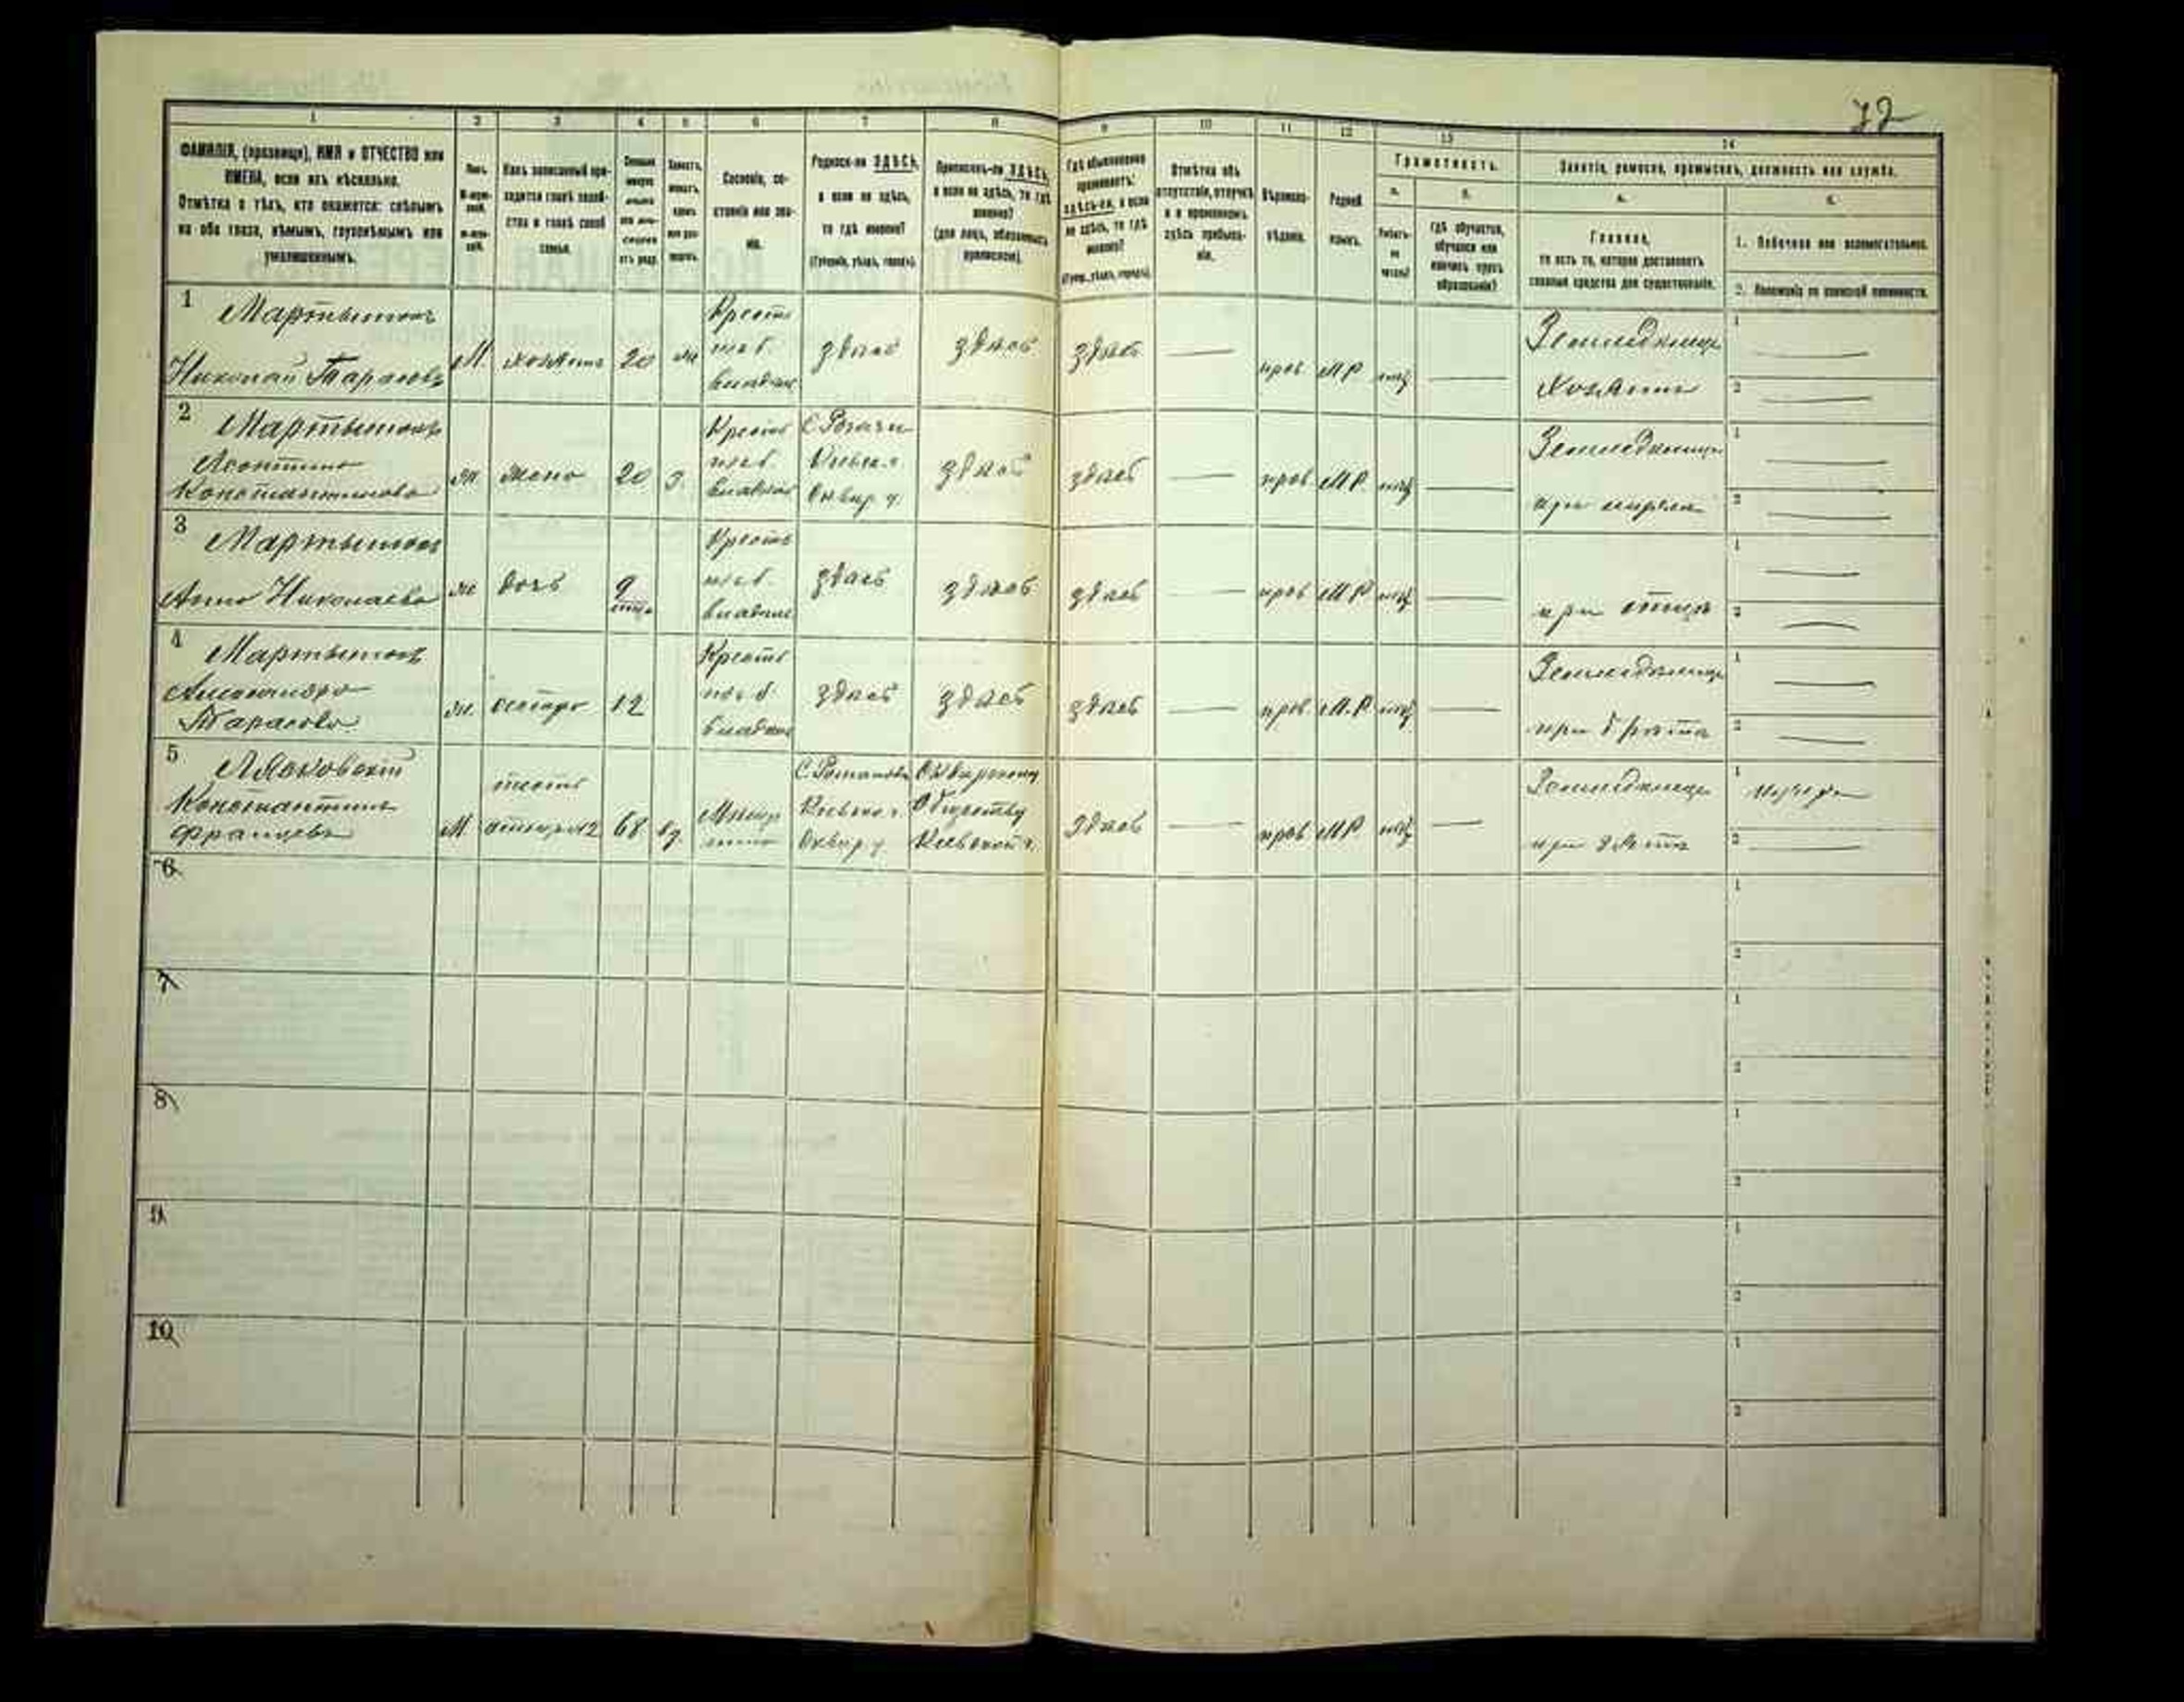 72
1 2 3 4 5 6 7 8 9 10 11 12 13 14
ФАМИЛІЯ, (прозвище), ИМЯ и ОТЧЕСТВО или
ИМЕНА, если ихъ нѣсколько.
Отмѣтка о тѣхъ, кто окажется: слѣпымъ
на оба глаза, нѣмымъ, глухонѣмымъ или
умалишеннымъ.
Полъ.
Какъ записанный при-
ходится главѣ хозяй-
ства и главѣ своей
семьи.
Сословіе, со-
стояніе или зва-
ніе.
Родился-ли ЗДѢСЬ,
а если не здѣсь,
то гдѣ именно?
(Губернія, уѣздъ, городъ).
Приписанъ-ли ЗДѢСЬ,
а если не здѣсь, то гдѣ
именно?
(для лицъ, обязанныхъ
припискою).
Гдѣ обыкновенно
проживаетъ:
здѣсь-ли, а если
не здѣсь, то гдѣ
именно?
(Губер., уѣздъ, городъ).
Отмѣтка объ
отсутствіи, отлучкѣ
и о временномъ
здѣсь пребыва-
ніи.
Вѣроиспо-
вѣданіе.
Родной
языкъ.
Грамотность.
а. б.
Умѣетъ-
ли
читать?
гдѣ обучается,
обучался или
кончилъ курсъ
образованія?
Занятіе, ремесло, промыселъ, должность или служба.
а. б.
Главное,
то есть то, которое доставляетъ
главныя средства для существованія.
1. Побочное или вспомогательное.
2. Положеніе по воинской повинности.
1 Мартынюкъ
Николай Тарасовъ
М. хозяинъ 20 ж
Крестн
изъ б.
владѣл
здѣсь здѣсь здѣсь — прав МР нѣтъ —
Земледѣлецъ
Хозяинъ
1 —
2 —
2 Мартынюкъ
Константинова
ж. жена 20 з.
Крестн
изъ б.
владѣл
Кіевск. г.
Сквир. у.
здѣсь здѣсь — прав М.Р. нѣтъ —
Земледѣлецъ
при мужѣ
1 —
2 —
3 Мартынюкъ
Анна Николаева
ж дочь 9
Крестн
изъ б.
владѣл
здѣсь здѣсь здѣсь — прав МР нѣтъ —
при отцѣ
1 —
2 —
4 Мартынюкъ
Александра
Тарасова
ж. сестра 12
Крестн
изъ б.
владѣл
здѣсь здѣсь здѣсь — прав. М.Р. нѣтъ —
Земледѣлецъ
при братѣ
1 —
2 —
5
Константинъ
Францевъ
М.
тесть
отецъ №2
68 вд.
Мѣща
нинъ
С. Романовка
Кіевск. г.
Сквир. у.
Сквирскому
Обществу
Кіевской г.
Здѣсь — прав МР нѣтъ —
Земледѣлецъ
при зятѣ
1
2 —
6
1
2
7
1
2
8
1
2
9
1
2
10
1
2